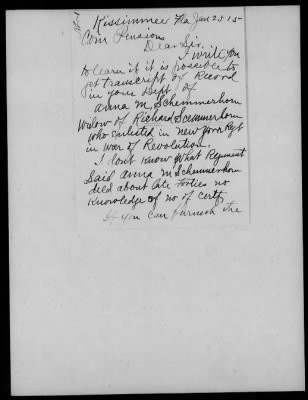 Kissimmee Fla Jan 23 15
Com Pension
Dear Sir.
I write you
to learn if it is possible to
get transcript of Record
in your Dept of
Anna M. Schemmerhorn
Widow of Richard Scemmerhorn
who enlisted in new york Regt
in war of Revolution.
I dont know what Regiment
Said Anna M Schemmerhorn
died about late forties no
knowledge of no of certf
If you can furnish the